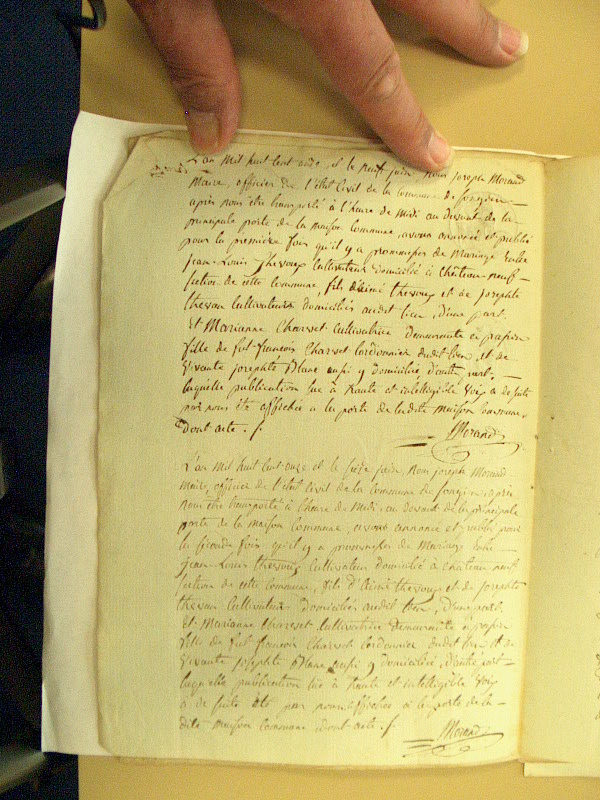 L'an mil huit cent onze et le neuf juin, Nous joseph Morand
Maire, officier de l'état Civil de la Commune de
après nous être transporté à l'heure de Midi au Devant de la
principale porte de la maison Commune, avons annoncé et publié
pour la premiere fois qu'il y a promesses de Mariage Entre
jean-Louis Thesoux Cultivateur domicilié à Château-neuf
section de cette Commune, fils d'aimé thesoux et de josephte
thesan Cultivateurs domiciliés audit lieu, d'une part
Et Marianne Charvet Cultivatrice Demeurante à
fille de fut françois Charvet Cordonnier dudit lieu, et de
Vivante josephte Blanc aussi y Domiciliée, d'autre part,
laquelle publication lue à haute et intelligible Voix a de suite
par nous été affichée a la porte de ladite maison Commune,
dont acte ./.
Morand
L'an mil huit cent onze et le seize juin, Nous joseph Morand
Maire, officier de l'état civil de la Commune de après
Nous être transporté à l'heure de Midi, au devant de la principale
porte de la Maison Commune, avons annoncé et publié pour
la seconde fois qu'il y a promesses de Mariage entre
jean-Louis thesoux Cultivateur domicilié à chateau neuf
section de cette Commune, fils d'Aimé thesoux et de josephte
thesan Cultivateurs domiciliés audit lieu, d'une part,
Et Marianne Charvet Cultivatrice Demeurante à
fille de fut françois Charvet Cordonnier dudit lieu et de
Vivante josephte Blanc aussi y domiciliée, d'autre part
laquelle publication lue à haute et intelligible Voix
a de suite été par nous affichée à la porte de la
dite maison Commune dont acte ./.
Morand